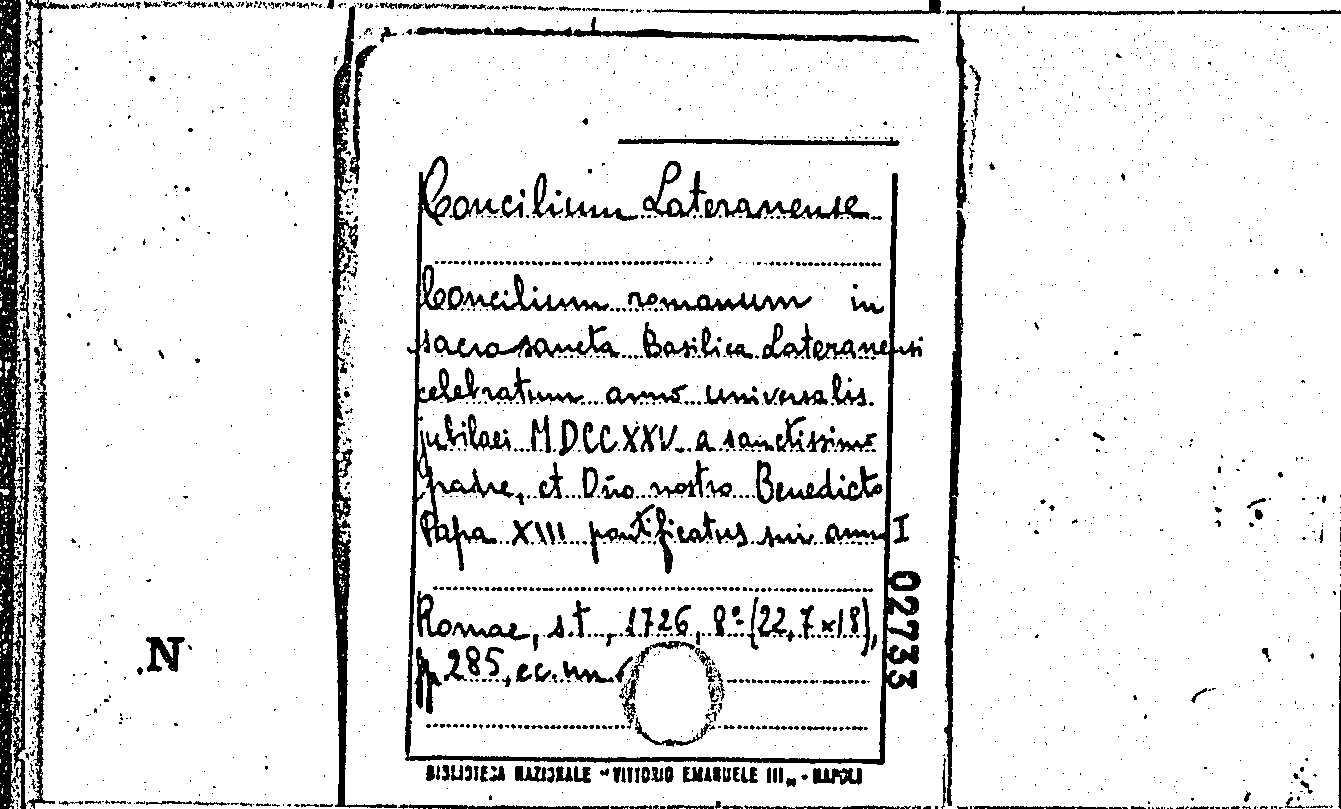 Concilium Lateranense
Concilium romanum in
sacrosancta Basilica Lateranensi
celebratum anno universalis
jubilaei MDCCXXV a sanctissimo
Padre, et Dño nostro Benedicto
Papa XIII pontificatus sui anno I
Romae, s.t., 1726, 8º (22,7×18),
pp 285, cc. nn.
02733
BIBLIOTECA NAZIONALE "VITTORIO EMANUELE III„ - NAPOLI
.N